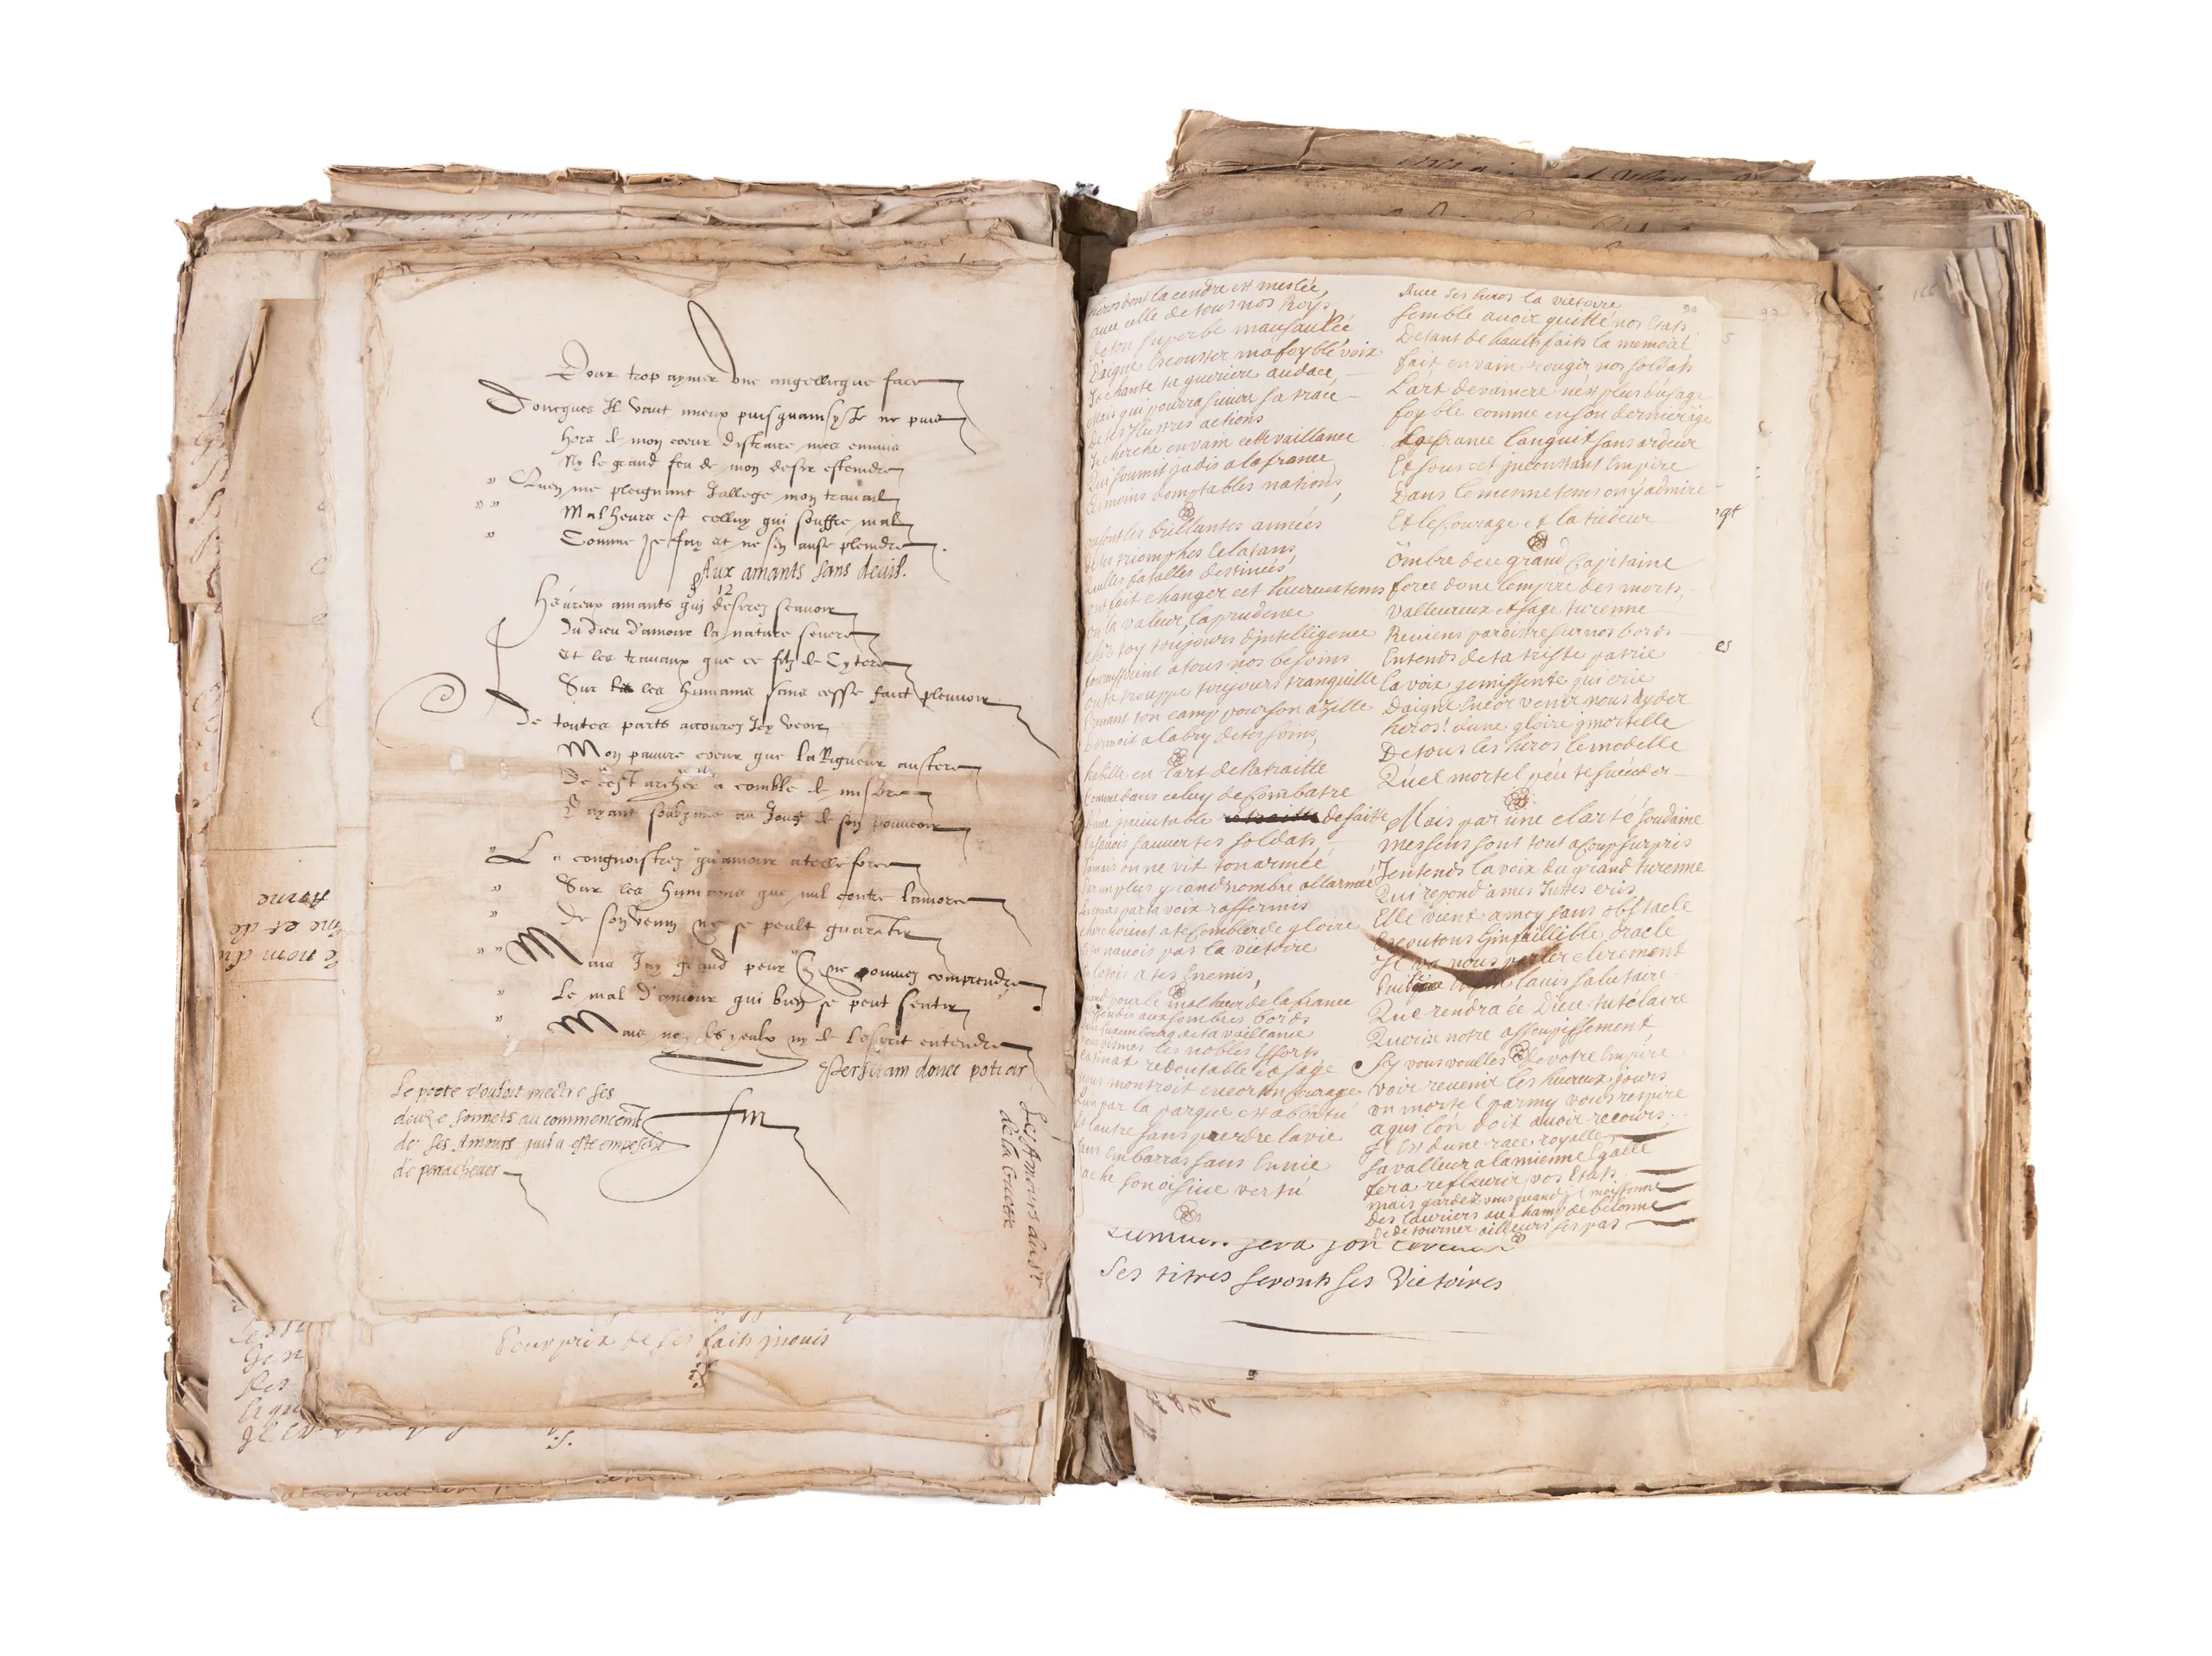 Pour trop aymer une angellicque face
Doncques Il vault mieux puisquainsy Je ne puis
Hors de mon coeur distraire mes ennuis
Ny le grand feu de mon desir esteindre
" Quen me pleignant Jallege mon travail
" " Malheure est celluy qui souffre mal
" Comme Je fay et ne sen ause pleindre.
Aux amants sans deuil.
12
Heureux amants qui desirez scavoir
Du dieu d'amour la nature severe
Et les travaux que ce filz de Cytere
Sur les humains sans cesse faict pleuvoir
De toutes parts accourez Icy veoir
Mon pauvre coeur que la Rigueur austere
De cest archer a comblé de misere
L'ayant soubzmis au Joug de son pouvoir
" La congnoistrez qu'amour a telle force
" Sur les humains que nul contre l'amorce
" De son venin ne se peult guarentir
" " Mais Jay grand peur que ne pouvez comprendre
" Le mal d'amour qui bien se peut sentir
" Mais non des yeulx ny de l'esprit entendre
Perficiam donec potiar
fin
Le poete vouloit mectre ses
douze sonnets au commencemt
de ses Amours quil a esté empesché
de parachever
Les Amours du Sr
de la
Pour prix de ses faits jnouis
le nom du
me et de
Aorne
heros dont la cendre est meslée,
avec celle de tous nos Roys,
de ton superbe mausaulée
daigne Escouster ma foyble voix
Je chante ta guerriere audace,
Mais qui pourra suivre la trace
de tes Jllustres actions
Je cherche en vain cette vaillance
Qui soumit jadis a la france
les moins domptables nations,
ou sont les brillantes années
de tes triomphes Eclatans,
quelles fatalles destinées
ont fait changer cet heureux tems
ou la valeur, la prudence
chés toy toujours d'jntelligence
fournissoient a tous nos besoins
ou ta trouppe toujours tranquille
prenant ton camp pour son azille
dormoit a labry de tes soins,
habille en L'art de Retraitte
Comme dans celuy de Combatre
d'une jnevitable defaitte
tu scavois sauver tes soldats,
Jamais on ne vit ton armée,
d'un plus grand nombre allarmée
les coeurs par ta voix raffermis
cherchoient a te combler de gloire
tu n'avois pas la victoire
a tes Enemis,
quand pour le malheur de la france
tu descendis aux sombres bords
dans Luxembourg de ta vaillance
nous vismes les nobles Efforts
catinat redoutable et sage
nous montroit encor ton courage
L'un par la parque est abbatu
Et lautre sans perdre la vie
sans embarras sans Envie
cache son oisive vertu
Avec ses heros la victoire
semble avoir quitté nos Etats
De tant de hauts faits la memoire
fait en vain rougir nos soldats
L'art de vaincre n'est plus d'usage
foyble comme en son dernier âge
La france languit sans ardeur
Et sous cet jnconstant Empire
Dans le mesme tems on y admire
Et le Courage et la tiedeur
Ombre de ce grand Capitaine
force donc lempire des morts,
valleureux et sage turenne
Reviens paroistre sur nos bords
Entends de ta triste patrie
la voix gemissente qui crie
Daigne Encor venir nous ayder
heros! d'une gloire jmortelle
De tous les heros le modelle
Quel mortel peut te succeder
Mais par une clarté soudaine
mes sens sont tout a coup surpris
J'entends la voix du grand turenne
Qui repond a mes Justes cris
Elle vient a moy sans obstacle
Escoutons L'infaillible Oracle
Jl va nous parler clerement
lavis salutaire
Que rendra ce Dieu tutelaire
Quérir notre assoupissement
Sy vous voulles de votre Empire
voir revenir les heureux jours
un mortel parmy vous respire
a qui lon doit avoir recours;
Jl Est d'une race royalle,
sa valleur a la mienne Egalle
fera refleurir vos Etats
mais gardez vous quand jl moissonne
Des lauriers au champ de belonne
de detourner ailleurs ses pas
sera son
Ses titres seront ses Victoires